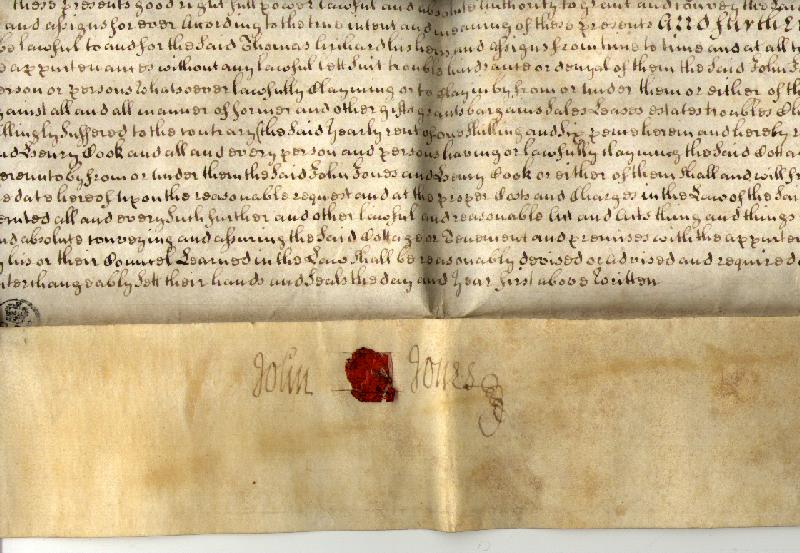 these presents good right full power lawful and absolute Authority to grant and convey the said
and assigns for ever According to the true intent and meaning of these presents And further
be lawful to and for the said Thomas his heirs and assigns from time to time and at all t
appurtenances without any lawful lett suit trouble hindrance or denyal of them the said John J
erson or persons whatsoever lawfully Claymeing or to Clayme by from or under them or either of th
gainst all and all manner of former and other gifts grants bargains Sales Leases estates troubles
illingly Suffered to the contrary (the said yearly rent of One Shilling and Six pence herein and hereby r
nd Henry Cook and all and every person and persons having or lawfully claymeing the said Cottag
ereunto by from or under them the said John Jones and Henry Cook or either of them shall and will f
e date hereof upon the reasonable request and at the proper Costs and Charges in the Law of the said
ecuted all and every such further and other lawful and reasonable Act and Acts thing and things
nd absolute conveying and assuring the said Cottage or Tenement and premises with the appurten
y his or their Councel Learned in the Law shall be reasonably devised or advised and required
nterchangeably sett their hands and Seals the day and year first above Written
John Jones